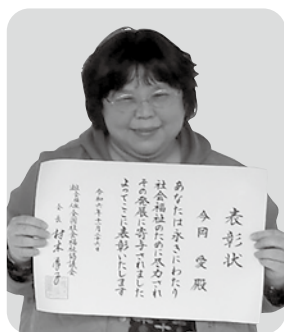 表彰状
今岡 愛 殿
あなたは永きにわたり
社会福祉のために尽力され
その発展に寄与されました
よってここに表彰いたします
令和六年十一月二十六日
社会福祉法人全国社会福祉協議会
会長 村木厚子